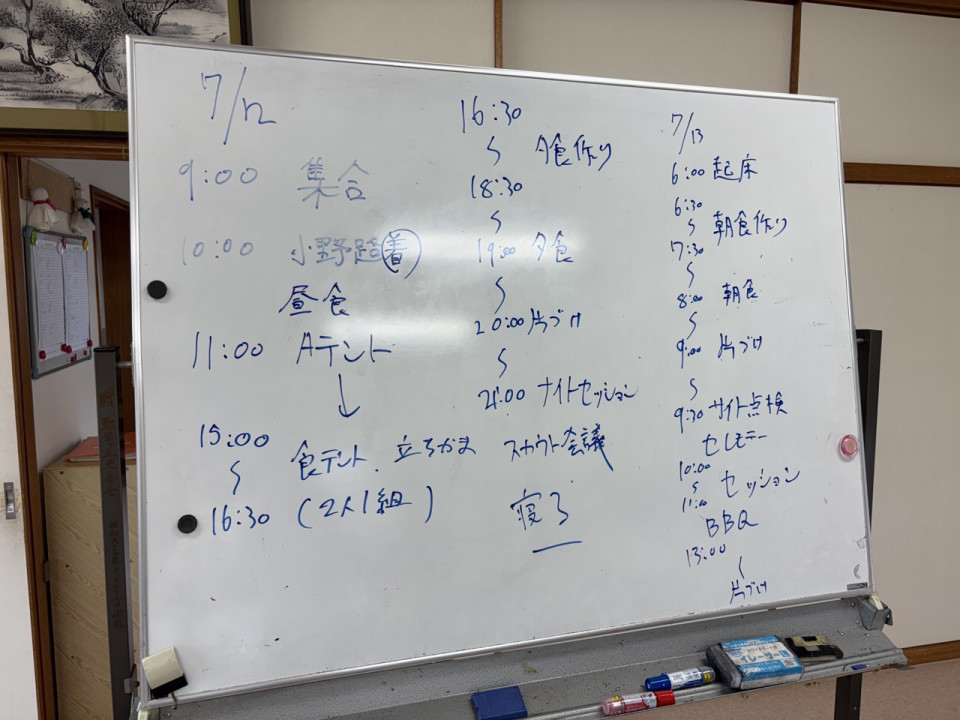 7/12
9:00 集合
10:00 小野路着
昼食
11:00 Aテント
↓
15:00
〜 食テント、立ちかま
16:30 (2人1組)
16:30
〜 夕食作り
18:30
〜
19:00 夕食
〜
20:00 片づけ
〜
21:00 ナイトセッション
スカウト会議
寝る
7/13
6:00 起床
6:30
〜 朝食作り
7:30
〜
8:00 朝食
〜
9:00 片づけ
〜
9:30 サイト点検
セレモニー
10:00
〜 セッション
11:00
BBQ
13:00
〜
片づけ